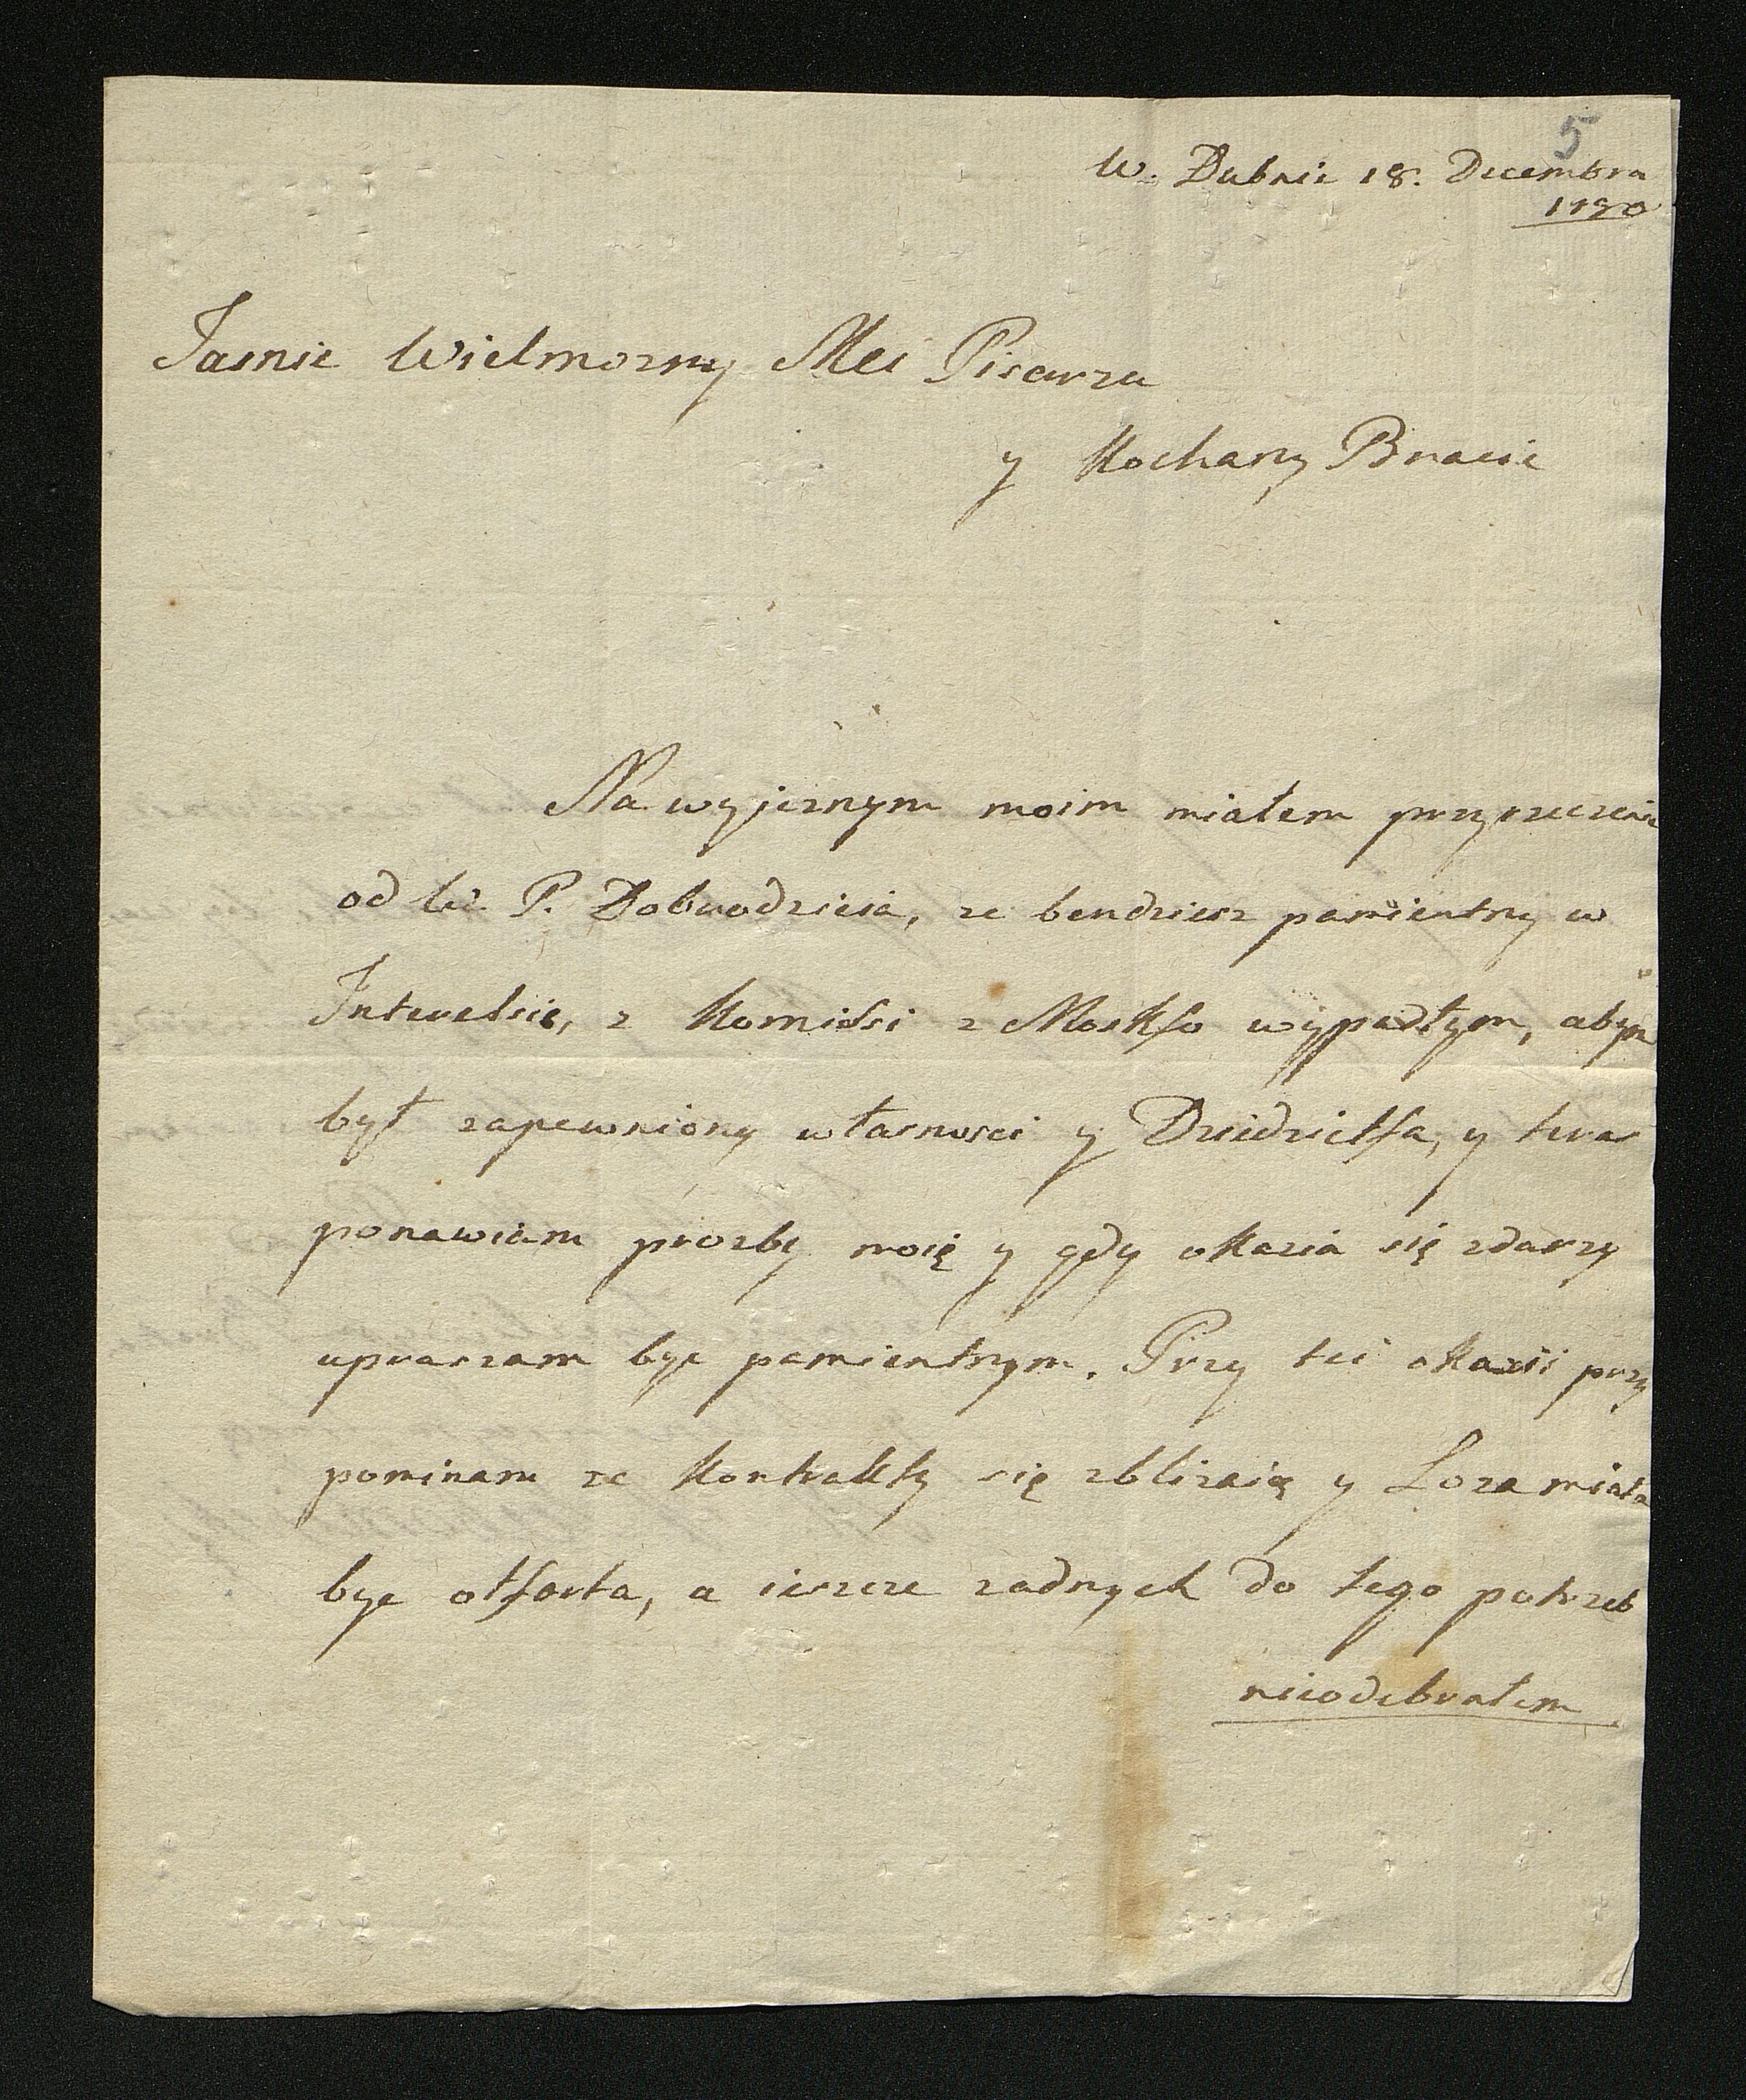 5
W. Dubnie 18. Decembra
1790
Jasnie Wielmozny Mci Pisarzu
y Kochany Bracie
Na wyjeznym moim miałem przyrzeczenie
od W. P. Dobrodzieia, ze bendziesz pamientny w
Interesie, z Komissi z Moskfo wypadłym, abym
był zapewniony własnosci y Dziedzictfa, y teras
ponawiam prozbę moię y gdy okazia się zdarzy
upraszam byc pamientnym. Przy tei okazii przy
pominam ze Kontrakty się zbliżaią y Loza miała
byc otfarta, a ieszcze zadnych do tego potrzeb
nieodebrałem